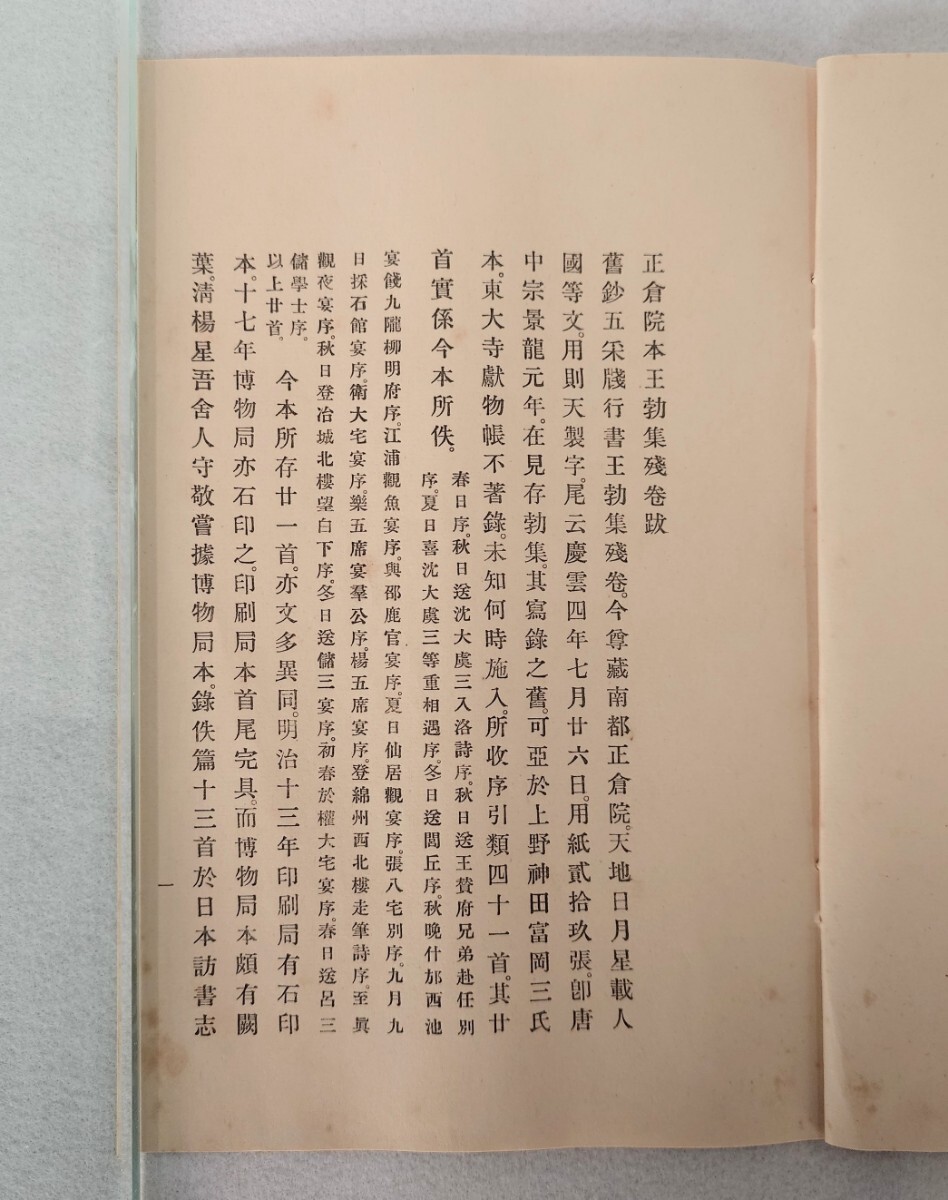 正倉院本王勃集殘卷跋
舊鈔五采牋行書王勃集殘卷。今尊藏南都正倉院。天地日月星載人
國等文。用則天製字。尾云慶雲四年七月廿六日。用紙貳拾玖張。卽唐
中宗景龍元年。在見存勃集。其寫錄之舊。可亞於上野神田富岡三氏
本。東大寺獻物帳不著錄。未知何時施入。所收序引類四十一首。其廿
首實係今本所佚。
春日序。秋日送沈大虞三入洛詩序。秋日送王贊府兄弟赴任別
序。夏日喜沈大虞三等重相遇序。冬日送閭丘序。秋晚什邡西池
宴餞九隴柳明府序。江浦觀魚宴序。與邵鹿官宴序。夏日仙居觀宴序。張八宅別序。九月九
日採石館宴序。衞大宅宴序。樂五席宴羣公序。楊五席宴序。登綿州西北樓走筆詩序。至眞
觀夜宴序。秋日登冶城北樓望白下序。冬日送儲三宴序。初春於權大宅宴序。春日送呂三
儲學士序。
以上廿首。
今本所存廿一首。亦文多異同。明治十三年印刷局有石印
本。十七年博物局亦石印之。印刷局本首尾完具。而博物局本頗有闕
葉。淸楊星吾舍人守敬嘗據博物局本。錄佚篇十三首於日本訪書志
一